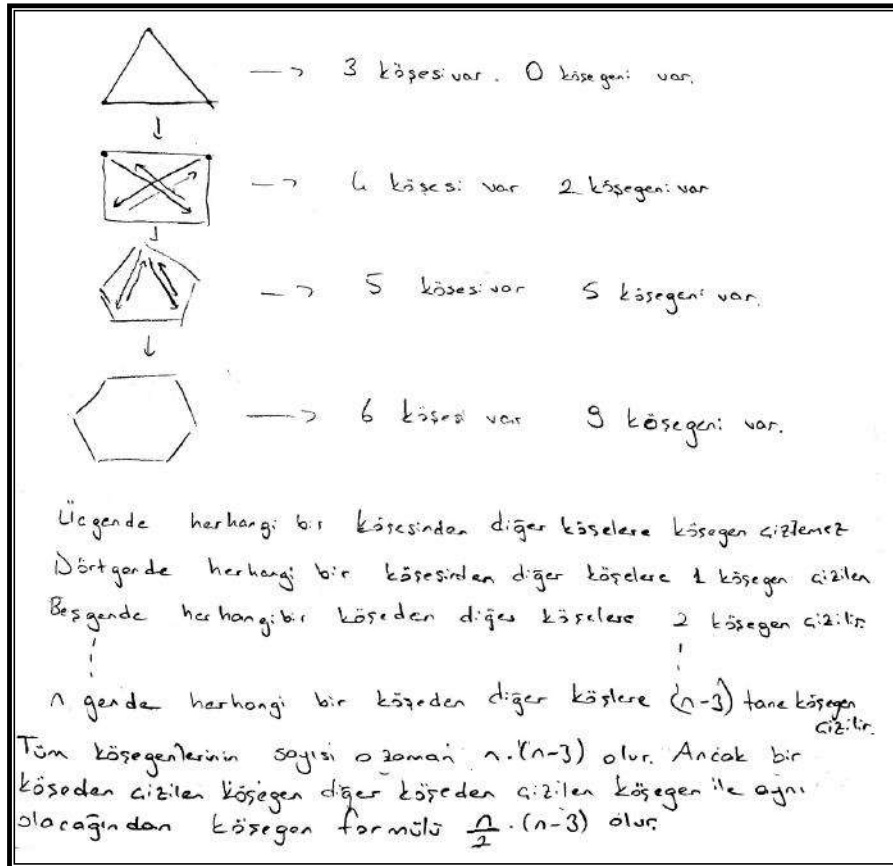 → 3 köşesi var. 0 köşegeni var.
→ 4 köşesi var 2 köşegeni var
→ 5 köşesi var 5 köşegeni var.
→ 6 köşesi var 9 köşegeni var.
Üçgende herhangi bir köşesinden diğer köşelere köşegen çizlemez
Dörtgende herhangi bir köşesinden diğer köşelere 1 köşegen çizilen
Beşgende herhangi bir köşeden diğer köşelere 2 köşegen çizilir.
n gende herhangi bir köşeden diğer köşlere (n-3) tane köşegen
çizilir.
Tüm köşegenlerinin sayısı o zaman n.(n-3) olur. Ancak bir
köşeden çizilen köşegen diğer köşeden çizilen köşegen ile aynı
olacağından köşegen formülü n/2 . (n-3) olur.